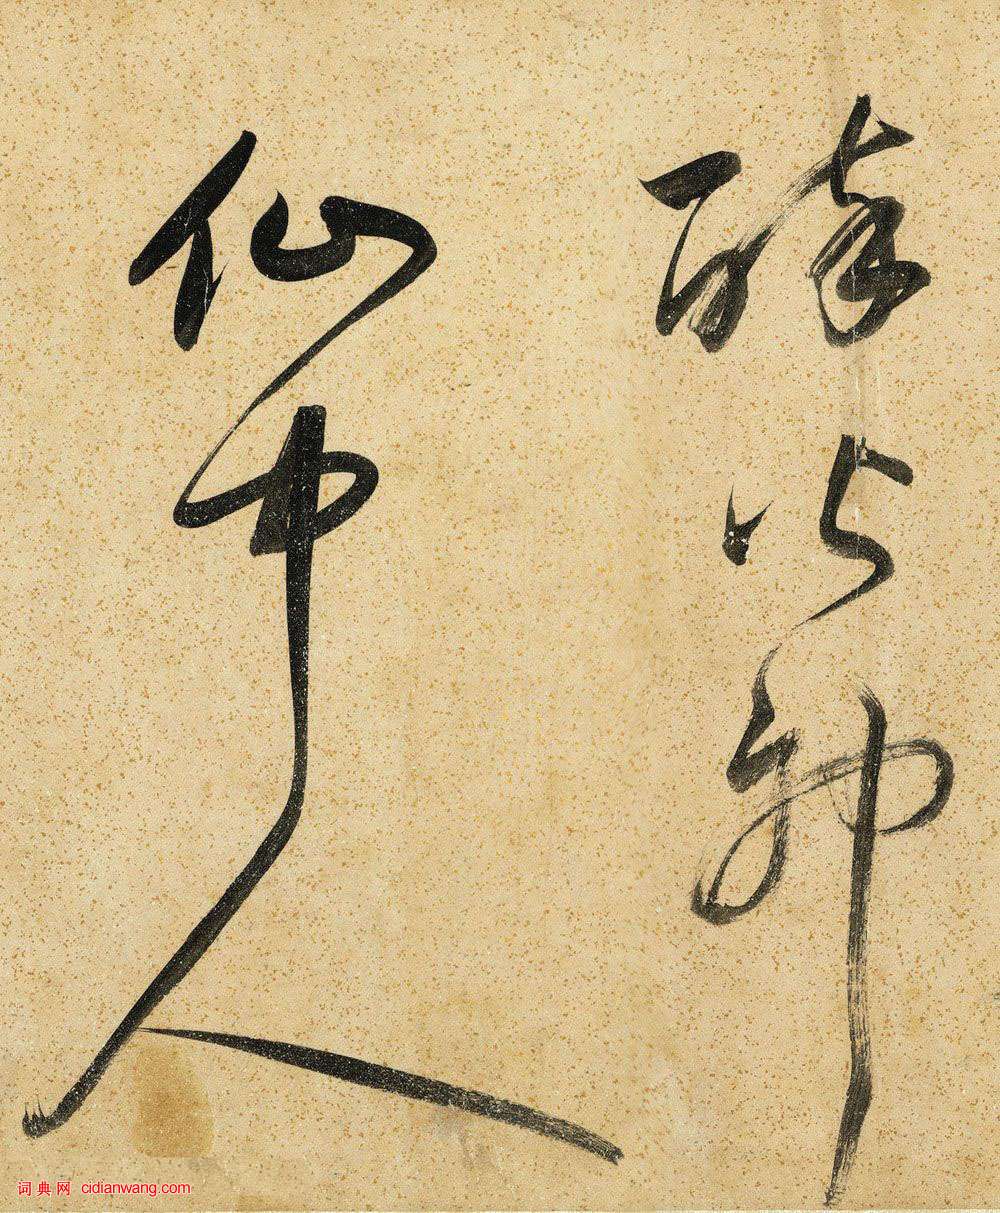 醉以神
仙中人
词典网 cidianwang.com